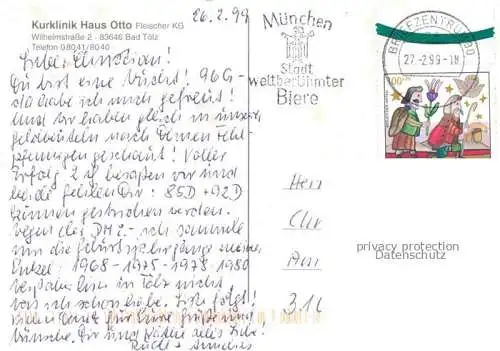 Kurklinik Haus Otto Fleischer KG
Wilhelmstraße 2 - 83646 Bad Tölz
Telefon 08041/8040
26.2.99
Du bist eine Wucht! 96G -
so habe ich mich gefreut!
und wir haben gleich in unseren
Geldbeuteln nach Deinen Fehl-
pfennigen geschaut! Voller
Erfolg 2 besaßen wir und
beide fehlen Dir: 85D + 92D
können gestrichen werden.
Wegen des DM 2.- ich sammle
nur die Geburtsjahrgänge meiner
Enkel: 1968 - 1975 - 1978 - 1980
in Tölz nicht
was ich schon habe. folgt!
Vielen Dank für Eure
wünsche, Dir und alles Liebe!
München
Stadt
weltberühmter
Biere
BRIEFZENTRUM 80
27.-2.99-18
100
Herr
privacy protection
Datenschutz